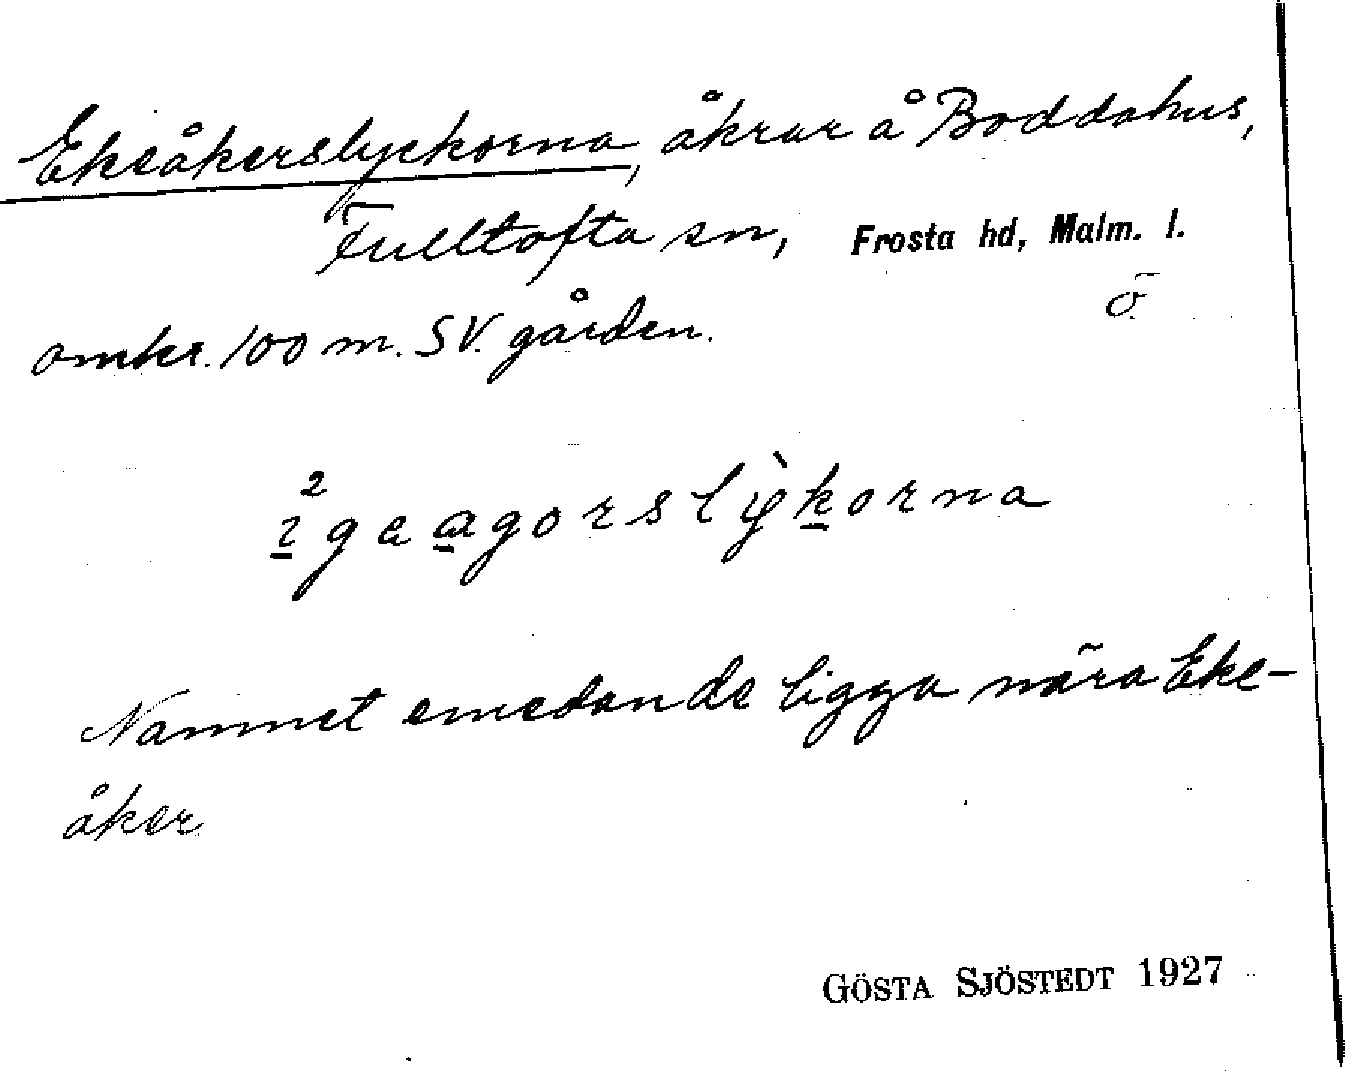 Ekeåkerslyckorna, åkrar å Boddahus,
Fulltofta sn, Frosta hd, Malm. l.
ö
omkr. 100 m. SV. gården.
Namnet emedan de ligga nära Eke-
åker
GÖSTA SJÖSTEDT 1927